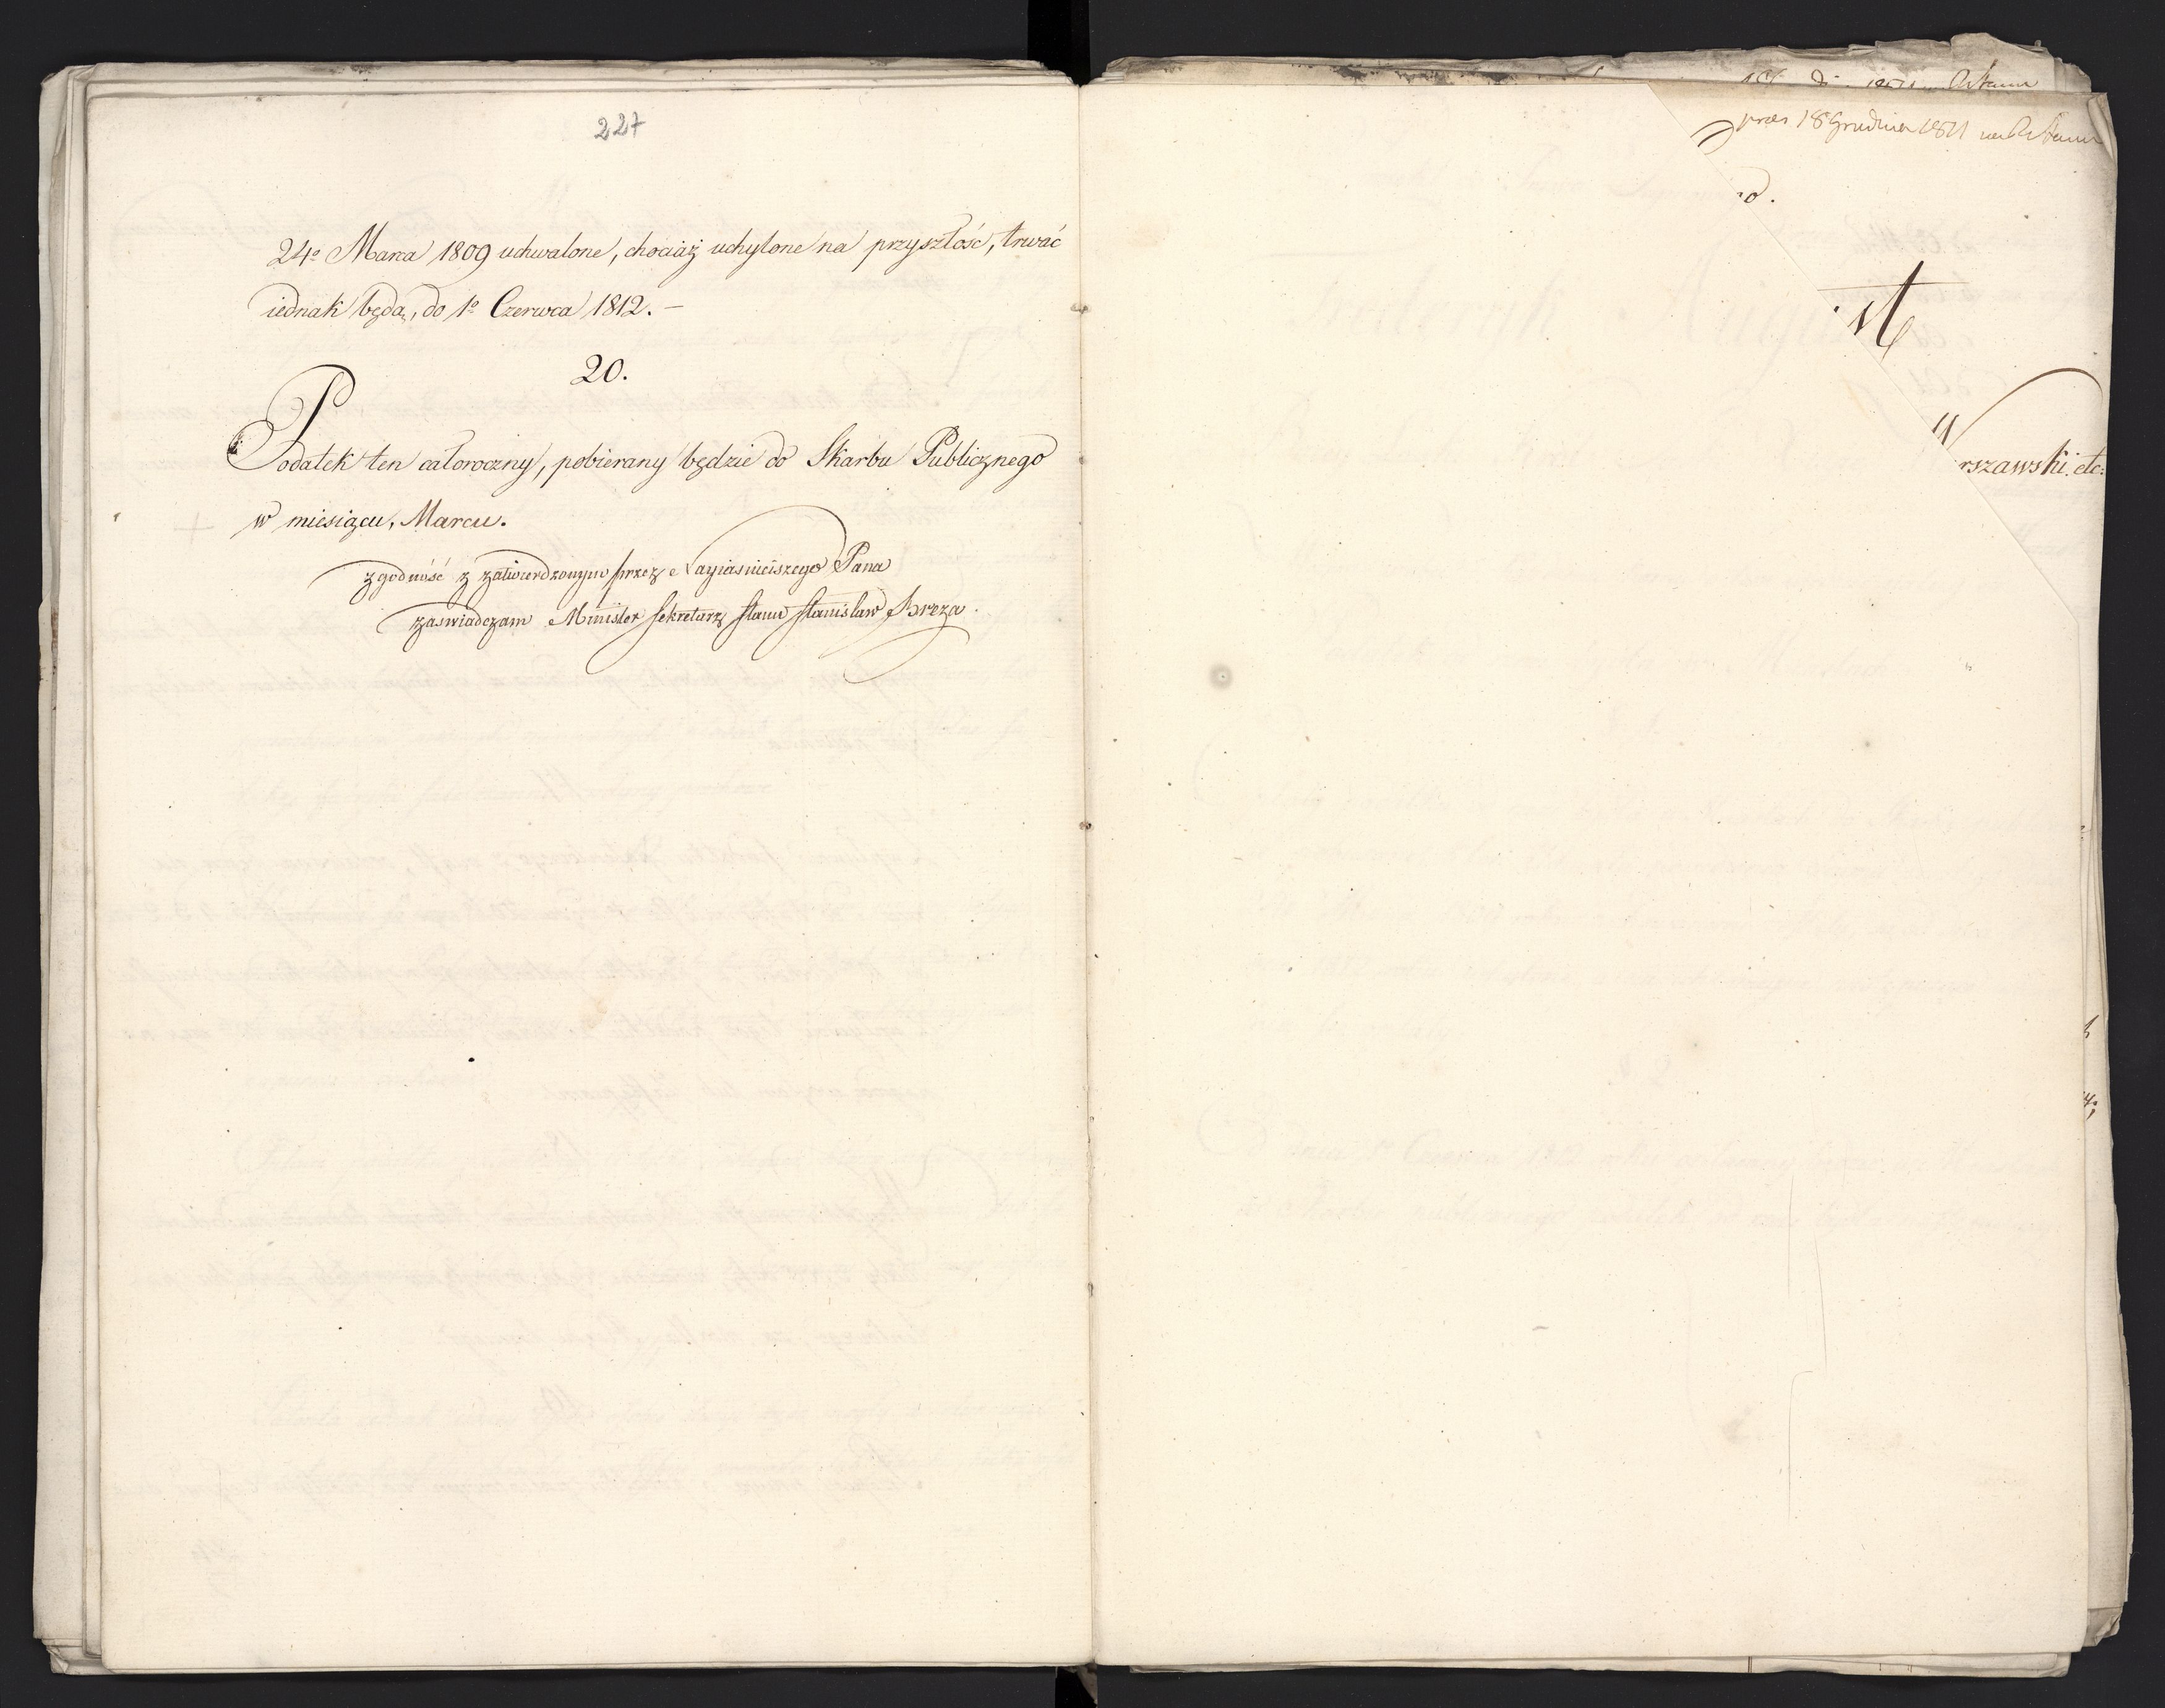 227
24º Marca 1809 uchwalone, chociaż uchylone na przyszłość, trwać
iednak będą, do 1º Czerwca 1812. –
20.
Podatek ten całoroczny, pobierany będzie do Skarbu Publicznego
w miesiącu, Marcu.
zgodność z zatwierdzonym przez Nayiaśnieiszego Pana
zaświadczam Minister Sekretarz Stanu Stanisław Breza.
18 Grudnia 1811
st
rszawski etc: